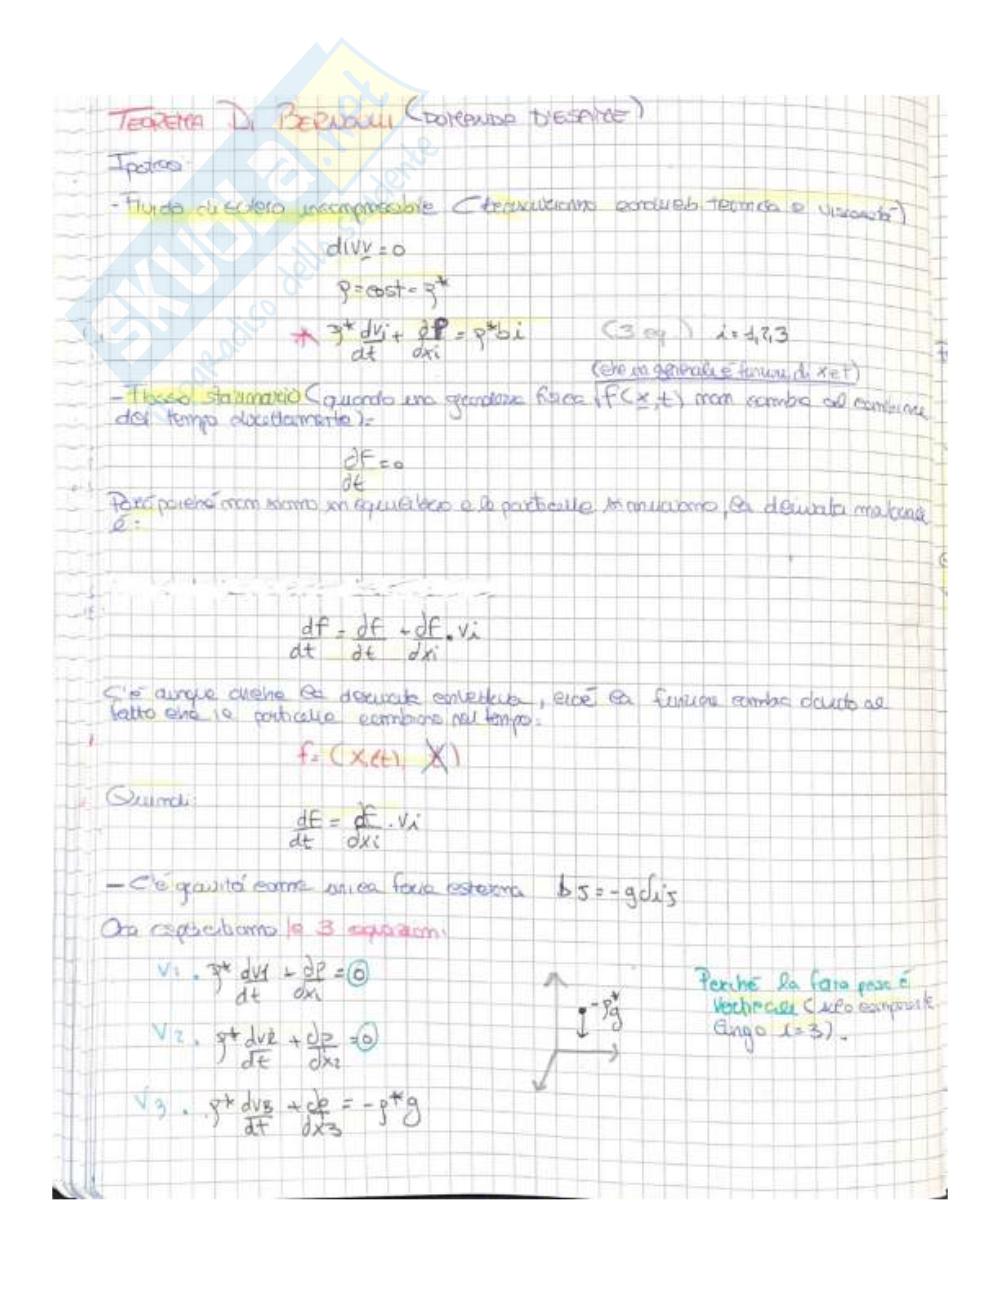 TEOREMA DI BERNOULLI (DOMANDA D'ESAME)
Ipotesi:
- Fluido di Eulero incomprimibile (trascuriamo conducib. termica e viscosità)
div v = 0
ρ = cost = ρ*
* ρ* dvi/dt + ∂P/∂xi = ρ* bi (3 eq.) i = 1,2,3
(che in generale è funzione di x e t)
- Flusso stazionario (quando una grandezza fisica f(x,t) non cambia al cambiare
del tempo direttamente):
∂F/∂t = 0
Però poiché non siamo in equilibrio e le particelle si muovono, la derivata materiale
è:
df/dt = ∂f/∂t + ∂f/∂xi · vi
C'è dunque anche la derivata convettiva, cioè la funzione cambia dovuto al
fatto che le particelle cambiano nel tempo:
f = (x(t), t)
Quindi:
df/dt = ∂f/∂xi · vi
- C'è gravità come unica forza esterna b5 = -gδi3
Ora riscriviamo le 3 equazioni:
V1 . ρ* dv1/dt + ∂p/∂x1 = 0
V2 . ρ* dv2/dt + ∂p/∂x2 = 0
V3 . ρ* dv3/dt + ∂p/∂x3 = -ρ* g
-ρ*g
Perché la forza peso è
verticale (solo componente
lungo i=3).
SKUOLA.net
il paradiso dello studente